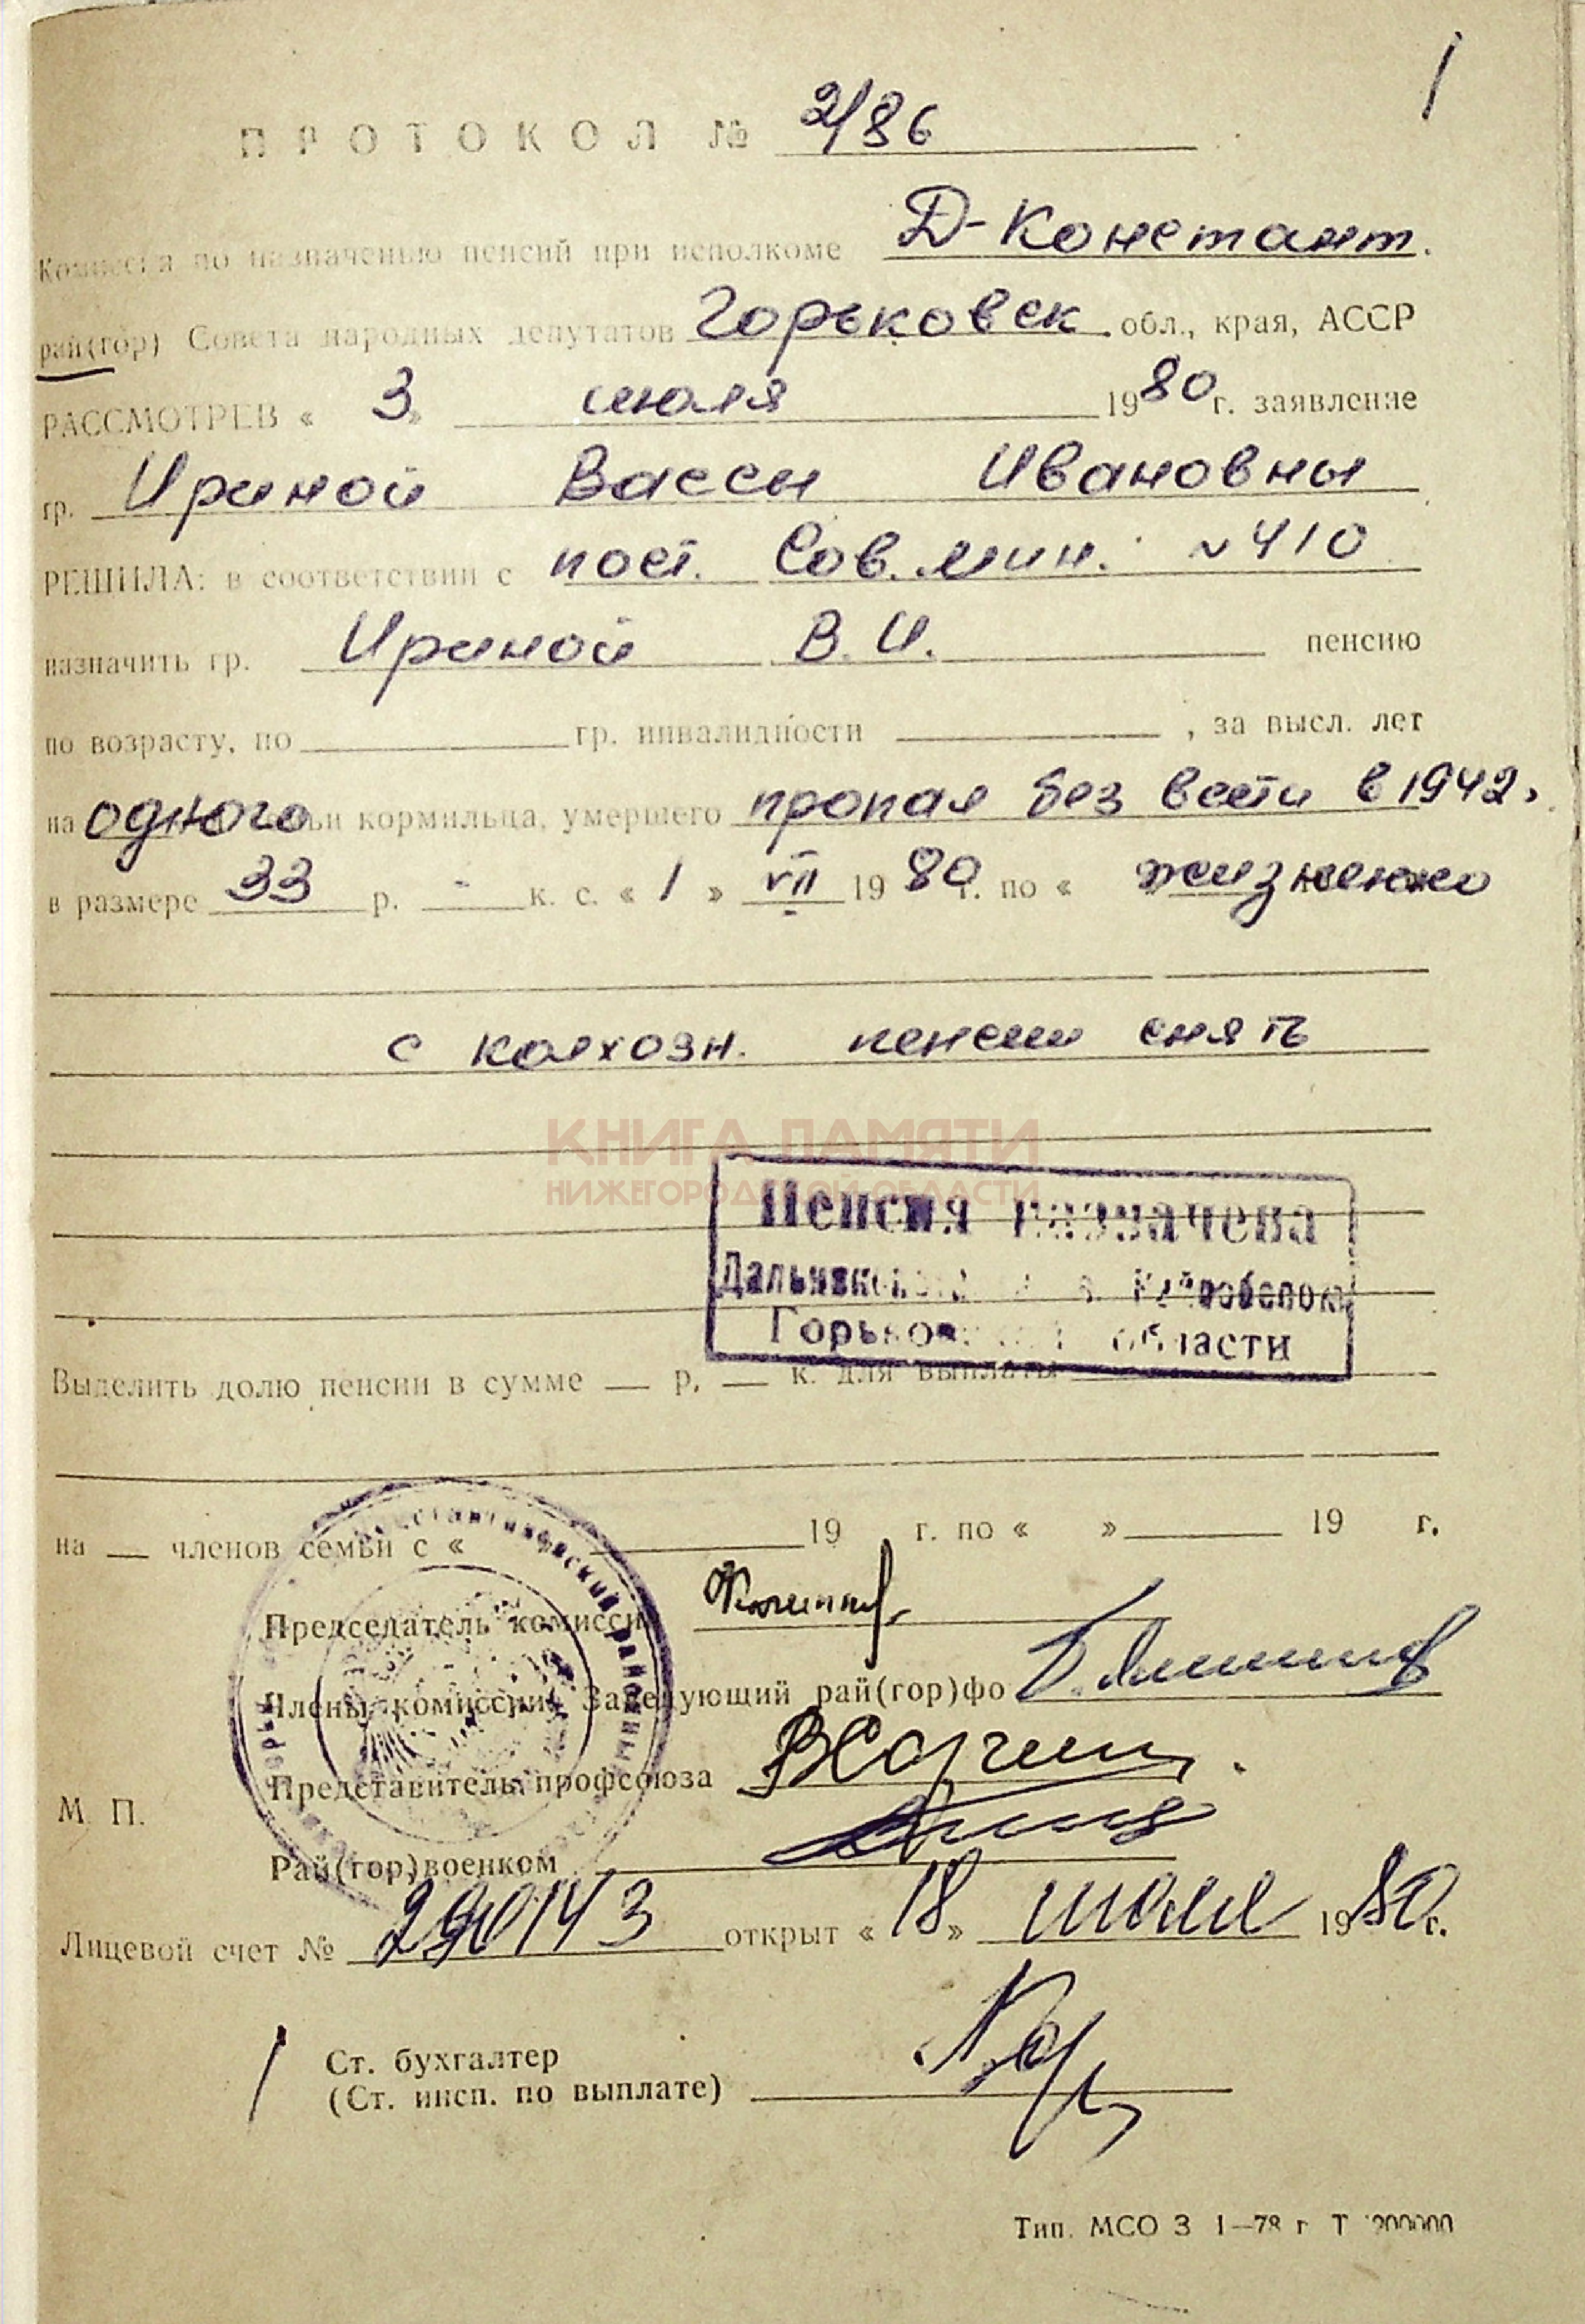 ПРОТОКОЛ № 2/86
Комиссия по назначению пенсий при исполкоме Д-Констант.
рай(гор) Совета народных депутатов Горьковск. обл., края, АССР
РАССМОТРЕВ « 3 » июля 1980 г. заявление
гр. Ириной Вассы Ивановны
РЕШИЛА: в соответствии с пост. Сов. мин. № 410
назначить гр. Ириной В. И. пенсию
по возрасту, по гр. инвалидности , за высл. лет
на одного кормильца, умершего пропал без вести в 1942.
в размере 33 р. - к. с. « 1 » VII 1980 г. по « жизненно
с колхозн. пенсии снять
КНИГА ПАМЯТИ
НИЖЕГОРОДСКОЙ ОБЛАСТИ
Пенсия назначена
Горьковской области
Выделить долю пенсии в сумме — р. — к. для выплаты
на — членов семьи с « 19 г. по « » 19 г.
Председатель комиссии
Члены комиссии: Заведующий рай(гор)фо
Представитель профсоюза
М. П.
Рай(гор)военком
Лицевой счет № 290143 открыт « 18 » июля 1980 г.
Ст. бухгалтер
(Ст. инсп. по выплате)
Тип. МСО З 1—78 г Т 200000
1